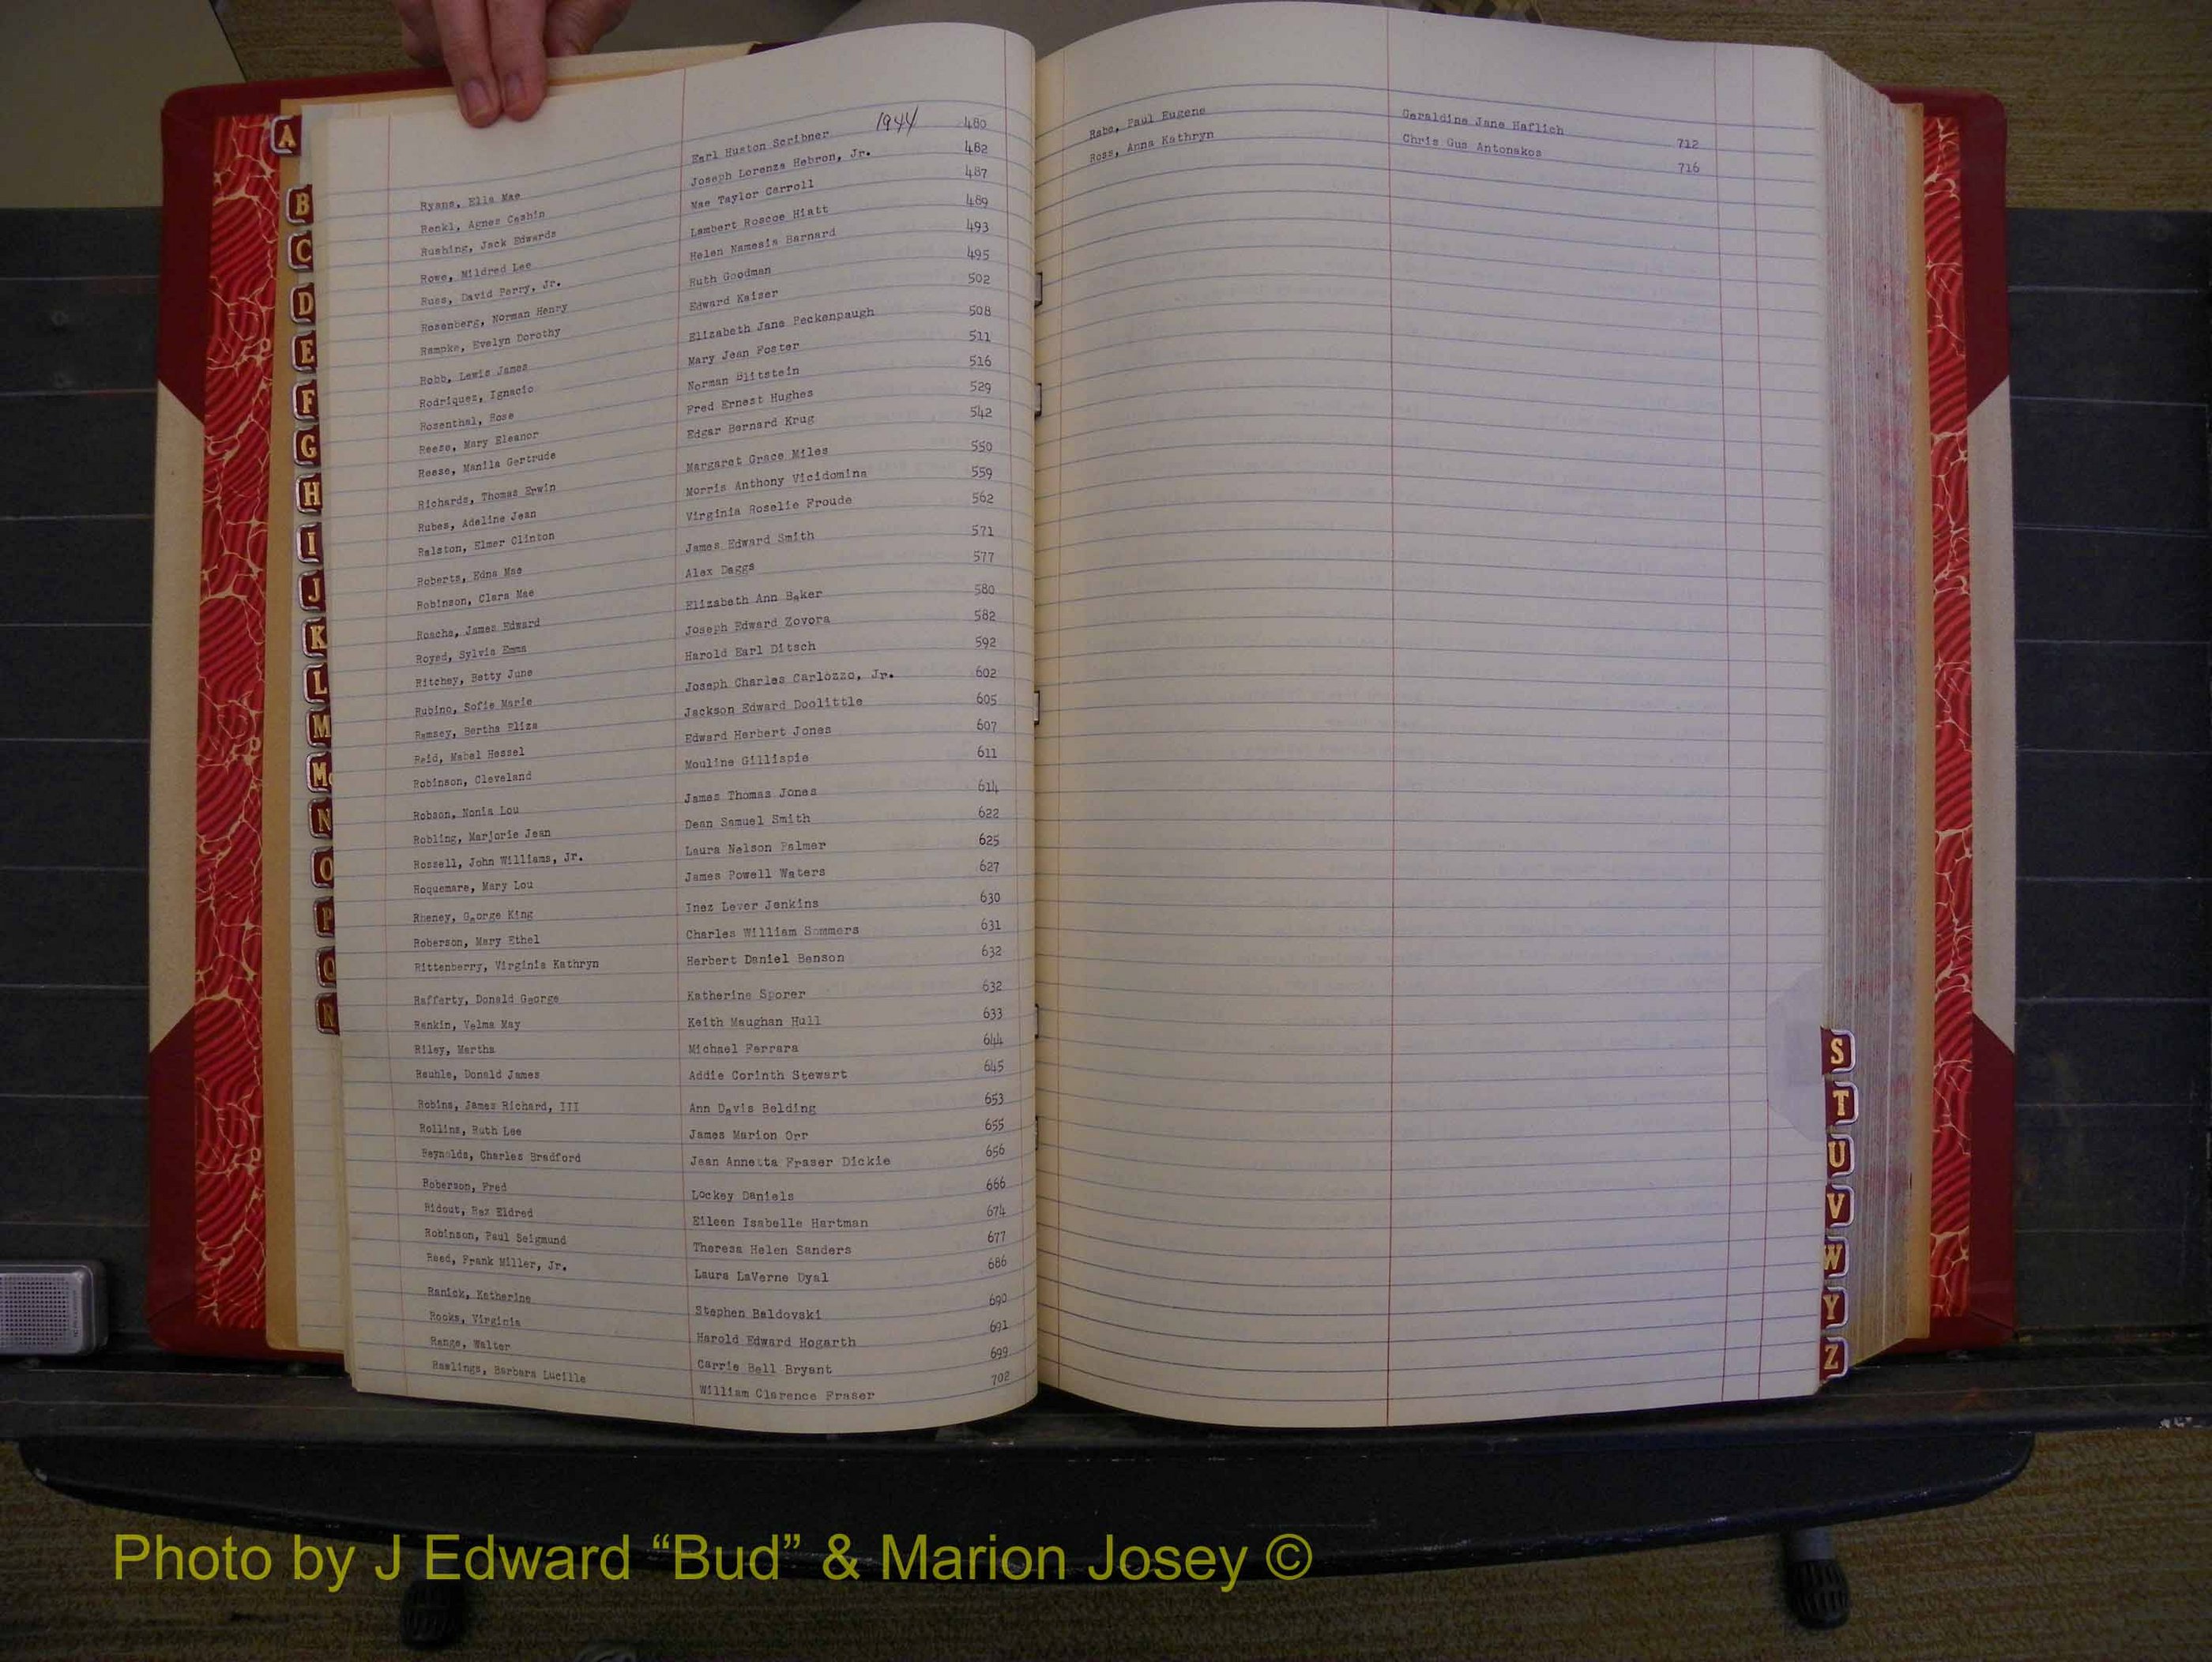 1944
Ryans, Ella Mae Earl Huston Scribner 480
Renkl, Agnes Cashin Joseph Lorenza Hebron, Jr. 482
Rushing, Jack Edwards Mae Taylor Carroll 487
Rowe, Mildred Lee Lambert Roscoe Hiatt 489
Russ, David Perry, Jr. Helen Namesis Barnard 493
Rosenberg, Norman Henry Ruth Goodman 495
Rampke, Evelyn Dorothy Edward Kaiser 502
Robb, Lewis James Elizabeth Jane Peckenpaugh 508
Rodriquez, Ignacio Mary Jean Foster 511
Rosenthal, Rose Norman Blitstein 516
Reese, Mary Eleanor Fred Ernest Hughes 529
Reese, Manila Gertrude Edgar Bernard Krug 542
Richards, Thomas Erwin Margaret Grace Miles 550
Rubes, Adeline Jean Morris Anthony Vicidomina 559
Ralston, Elmer Clinton Virginia Roselie Froude 562
Roberts, Edna Mae James Edward Smith 571
Robinson, Clara Mae Alex Daggs 577
Rosche, James Edward Elizabeth Ann Baker 580
Royed, Sylvia Emma Joseph Edward Zovora 582
Ritchey, Betty June Harold Earl Ditsch 592
Rubino, Sofie Marie Joseph Charles Carlozzo, Jr. 602
Ramsey, Bertha Eliza Jackson Edward Doolittle 605
Reid, Mabel Hessel Edward Herbert Jones 607
Robinson, Cleveland Mouline Gillispie 611
Robson, Nonia Lou James Thomas Jones 614
Robling, Marjorie Jean Dean Samuel Smith 622
Rossell, John Williams, Jr. Laura Nelson Palmer 625
Roquemare, Mary Lou James Powell Waters 627
Rheney, George King Inez Lever Jenkins 630
Roberson, Mary Ethel Charles William Sommers 631
Rittenberry, Virginia Kathryn Herbert Daniel Benson 632
Rafferty, Donald George Katherine Sporer 632
Rankin, Velma May Keith Maughan Hull 633
Riley, Martha Michael Ferrara 644
Reuhle, Donald James Addie Corinth Stewart 645
Robins, James Richard, III Ann Davis Belding 653
Rollins, Ruth Lee James Marion Orr 655
Reynolds, Charles Bradford Jean Annetta Fraser Dickie 656
Roberson, Fred Lockey Daniels 666
Ridout, Rex Eldred Eileen Isabelle Hartman 674
Robinson, Paul Seigmund Theresa Helen Sanders 677
Reed, Frank Miller, Jr. Laura LaVerne Dyal 686
Ranick, Katherine Stephen Baldovski 690
Rooks, Virginia Harold Edward Hogarth 691
Range, Walter Carrie Bell Bryant 699
Rawlings, Barbara Lucille William Clarence Fraser 702
Rabe, Paul Eugene Geraldine Jane Haflich 712
Ross, Anna Kathryn Chris Gus Antonakos 716
A
B
C
D
E
F
G
H
I
J
K
L
M
Mc
N
O
P
Q
R
S
T
U
V
W
Y
Z
Photo by J Edward “Bud” & Marion Josey ©